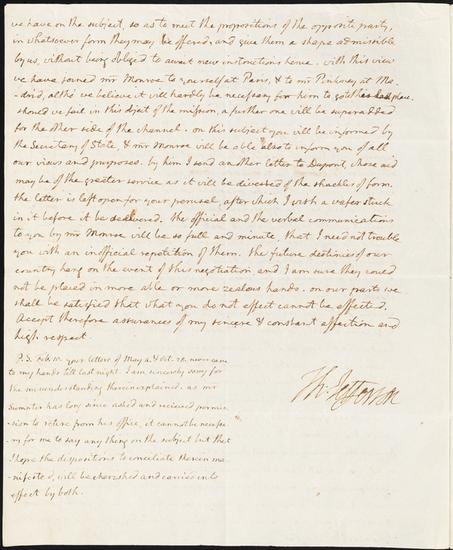 we have on the subject, so as to meet the propositions of the opposite party,
in whatsoever form they may be offered, and give them a shape admissible
by us, without being obliged to await new instructions hence. with this view
we have joined mr Monroe to yourself at Paris, & to mr Pinkney at Ma-
-drid, altho' we believe it will hardly be necessary for him to go to this last place.
should we fail in this object of the mission, a further one will be superadded
for the other side of the channel. on this subject you will be informed by
the Secretary of state, & mr Monroe will be able also to inform you of all
our views and purposes. by him I send another letter to Dupont, whose aid
may be of the greater service as it will be divested of the shackles of form.
the letter is left open for your perusal, after which I wish a wafer stuck
in it before it be delivered. the official and the verbal communications
to you by mr Monroe will be so full and minute, that I need not trouble
you with an inofficial repetition of them. the future destinies of our
country hang on the event of this negotiation, and I am sure they could
not be placed in more able or more zealous hands. on our parts we
shall be satisfied that what you do not effect cannot be effected.
Accept therefore assurances of my sincere & constant affection and
high respect.
Th: Jefferson
P.S. Feb. your letters of May & Oct. 28. never came
to my hands till last night. I am sincerely sorry for
the misunderstanding therein explained. as mr
Sumter has long since asked and recieved permis-
-sion to retire from his office, it cannot be necessa-
ry for me to say any thing on the subject but that
I hope the dispositions to conciliate therein ma-
-nifested, will be cherished and carried into
effect by both.